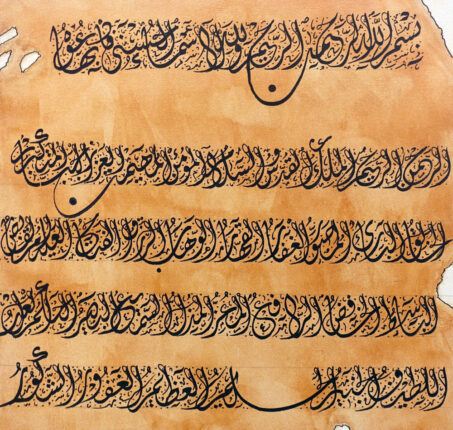 بسم الله الرحمن الرحيم ولله الاسماء الحسنى فادعوه بها
الرحمن الرحيم الملك القدوس السلام المؤمن المهيمن العزيز الجبار المتكبر
الخالق البارئ المصور الغفار القهار الوهاب الرزاق الفتاح العليم القابض
الباسط الخافض الرافع المعز المذل السميع البصير الحكم العدل
اللطيف الخبير الحليم العظيم الغفور الشكور